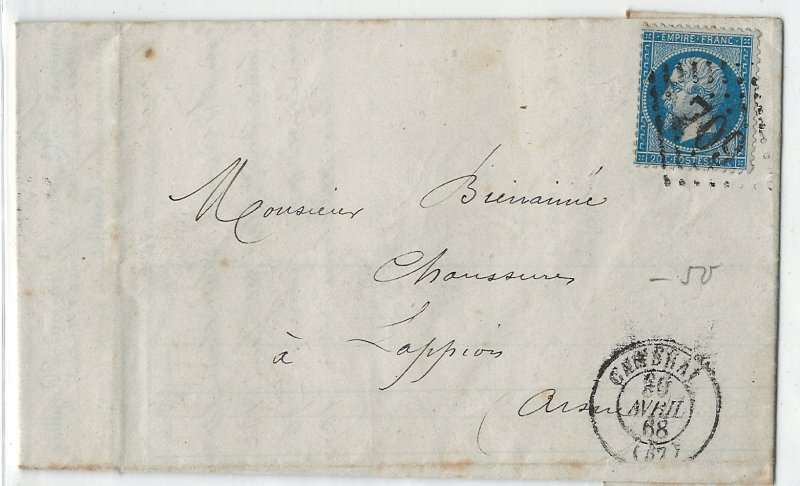 EMPIRE FRANC
709
20 POSTES
Monsieur Bienaimé
Chaussures
- 50
à Lappion
(Aisne
CAMBRAI
20
AVRIL
68
(57)